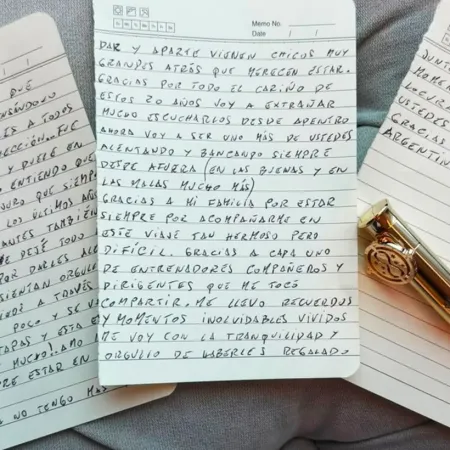 Memo No.
Date / /
DAR Y APARTE VIENEN CHICOS MUY
GRANDES ATRÁS QUE MERECEN ESTAR.
GRACIAS POR TODO EL CARIÑO DE
ESTOS 20 AÑOS VOY A EXTRAÑAR
MUCHO ESCUCHARLOS DESDE ADENTRO
AHORA VOY A SER UNO MÁS DE USTEDES
ALENTANDO Y BANCANDO SIEMPRE
DESDE AFUERA (EN LAS BUENAS Y EN
LAS MALAS MUCHO MÁS)
GRACIAS A MI FAMILIA POR ESTAR
SIEMPRE POR ACOMPAÑARME EN
ESTE VIAJE TAN HERMOSO PERO
DIFÍCIL. GRACIAS A CADA UNO
DE ENTRENADORES COMPAÑEROS Y
DIRIGENTES QUE ME TOCÓ
COMPARTIR. ME LLEVO RECUERDOS
Y MOMENTOS INOLVIDABLES VIVIDOS
ME VOY CON LA TRANQUILIDAD Y
ORGULLO DE HABERLES REGALADO
QUE
A TODOS
Y DUELE EN
ENTIENDO QUE
QUE SIEMPRE
LOS ÚLTIMOS AÑOS
TAMBIÉN
DEJÉ TODO
POR DARLES
A TRAVÉS
POCO Y SE
Y ESTA
MUCHO!!
ESTAR EN
NO TENGO MÁS
JUNTO
MOMENTO
LOCURA
USTEDES
GRACIAS
ARGENTIN